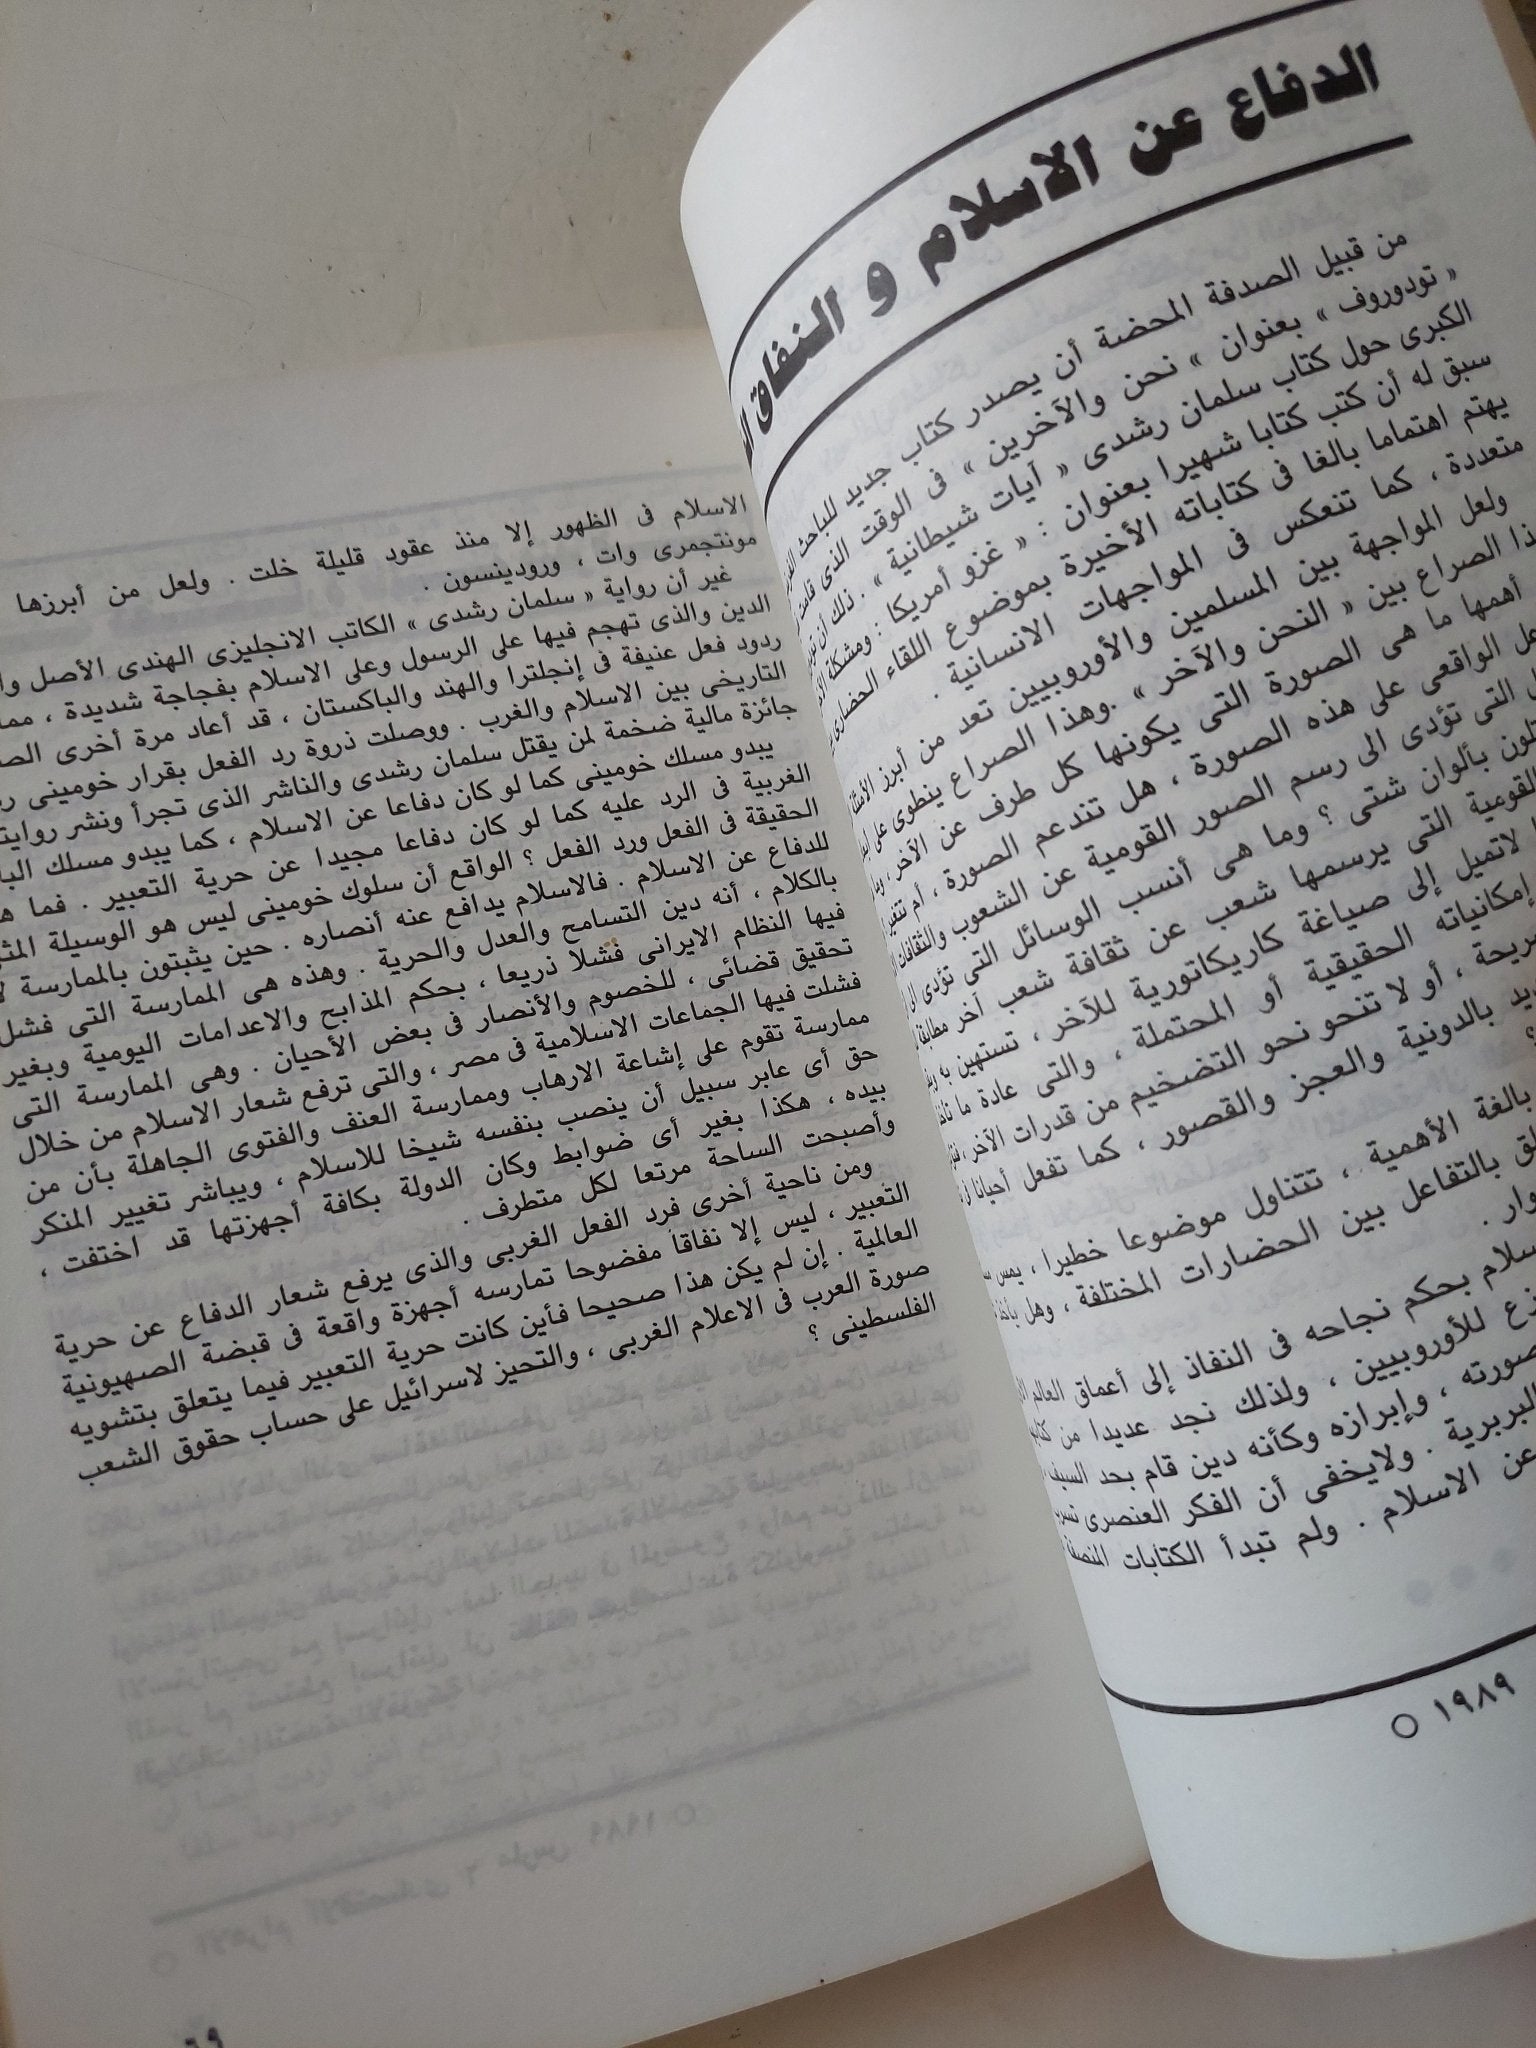 الدفاع عن الاسلام و النفاق
من قبيل الصدفة المحضة أن يصدر كتاب جديد للباحث
« تودوروف » بعنوان « نحن والآخرين » فى الوقت الذى قامت
الكبرى حول كتاب سلمان رشدى « آيات شيطانية » . ذلك أن
سبق له أن كتب كتابا شهيرا بعنوان : « غزو أمريكا : ومشكلة
يهتم اهتماما بالغا فى كتاباته الأخيرة بموضوع اللقاء الحضارى
متعددة ، كما تنعكس فى المواجهات الانسانية .
ولعل المواجهة بين المسلمين والأوروبيين تعد من أبرز
الصراع بين « النحن والآخر » . وهذا الصراع ينطوى على
أهمها ما هى الصورة التى يكونها كل طرف عن الآخر ،
الواقعى على هذه الصورة ، هل تتدعم الصورة ، أم
التى تؤدى الى رسم الصور القومية عن الشعوب والثقافات
بألوان شتى ؟ وما هى أنسب الوسائل التى تؤدى الى
القومية التى يرسمها شعب عن ثقافة شعب آخر
لاتميل إلى صياغة كاريكاتورية للآخر ، تستهين به
إمكانياته الحقيقية أو المحتملة ، والتى عادة ما
، أو لا تنحو نحو التضخيم من قدرات الآخر ،
بالدونية والعجز والقصور ، كما تفعل أحيانا
؟
بالغة الأهمية ، تتناول موضوعا خطيرا ، يمس
بالتفاعل بين الحضارات المختلفة ، وهل
.
بحكم نجاحه فى النفاذ إلى أعماق العالم
للأوروبيين ، ولذلك نجد عديدا من
صورته ، وإبرازه وكأنه دين قام بحد السيف
البربرية . ولايخفى أن الفكر العنصرى
عن الاسلام . ولم تبدأ الكتابات المنصفة
١٩٨٩ ○
الاسلام فى الظهور إلا منذ عقود قليلة خلت . ولعل من أبرزها
مونتجمرى وات ، ورودينسون .
غير أن رواية « سلمان رشدى » الكاتب الانجليزى الهندى الأصل
الدين والذى تهجم فيها على الرسول وعلى الاسلام بفجاجة شديدة ،
ردود فعل عنيفة فى إنجلترا والهند والباكستان ، قد أعاد مرة أخرى
التاريخى بين الاسلام والغرب . ووصلت ذروة رد الفعل بقرار خومينى
جائزة مالية ضخمة لمن يقتل سلمان رشدى والناشر الذى تجرأ ونشر
يبدو مسلك خومينى كما لو كان دفاعا عن الاسلام ، كما يبدو مسلك
الغربية فى الرد عليه كما لو كان دفاعا مجيدا عن حرية التعبير . فما
الحقيقة فى الفعل ورد الفعل ؟ الواقع أن سلوك خومينى ليس هو الوسيلة
للدفاع عن الاسلام . فالاسلام يدافع عنه أنصاره . حين يثبتون بالممارسة
بالكلام ، أنه دين التسامح والعدل والحرية . وهذه هى الممارسة التى فشل
فيها النظام الايرانى فشلا ذريعا ، بحكم المذابح والاعدامات اليومية وبغير
تحقيق قضائى ، للخصوم والأنصار فى بعض الأحيان . وهى الممارسة التى
فشلت فيها الجماعات الاسلامية فى مصر ، والتى ترفع شعار الاسلام من خلال
ممارسة تقوم على إشاعة الارهاب وممارسة العنف والفتوى الجاهلة بأن من
حق أى عابر سبيل أن ينصب بنفسه شيخا للاسلام ، ويباشر تغيير المنكر
بيده ، هكذا بغير أى ضوابط وكان الدولة بكافة أجهزتها قد اختفت ،
وأصبحت الساحة مرتعا لكل متطرف .
ومن ناحية أخرى فرد الفعل الغربى والذى يرفع شعار الدفاع عن حرية
التعبير ، ليس إلا نفاقا مفضوحا تمارسه أجهزة واقعة فى قبضة الصهيونية
العالمية . إن لم يكن هذا صحيحا فأين كانت حرية التعبير فيما يتعلق بتشويه
صورة العرب فى الاعلام الغربى ، والتحيز لاسرائيل على حساب حقوق الشعب
الفلسطينى ؟